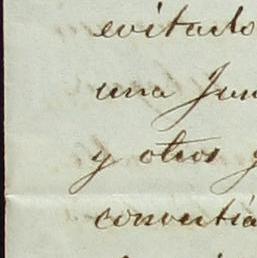 evitarlo
una Jun
y otros
convertia